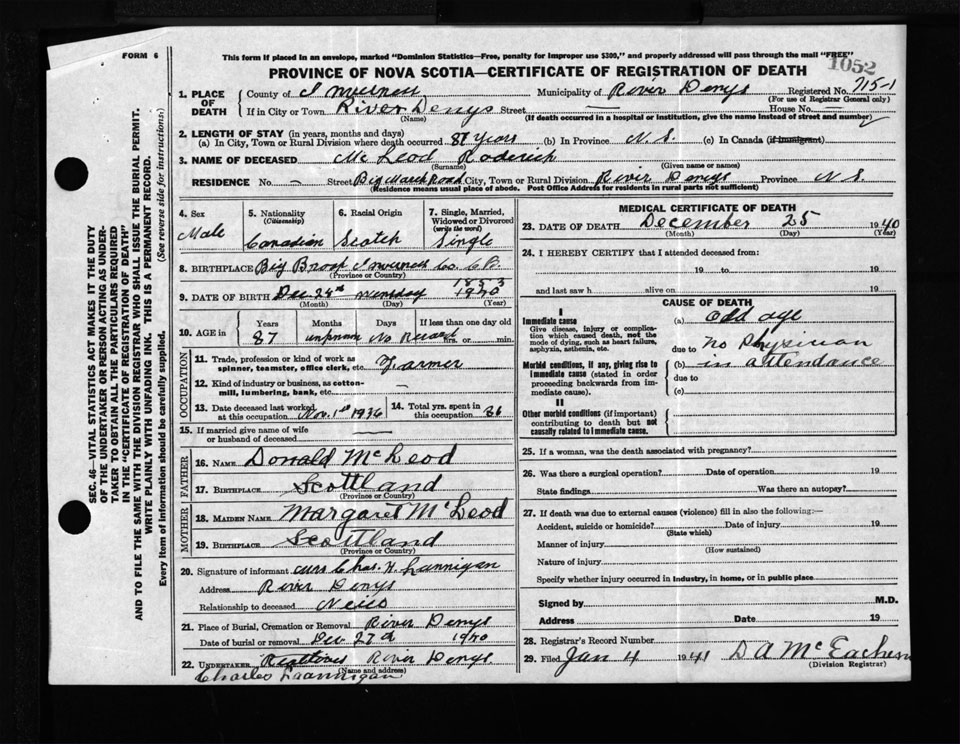 FORM 6
This form if placed in an envelope, marked "Dominion Statistics—Free, penalty for improper use $300," and properly addressed will pass through the mail "FREE"
1052
PROVINCE OF NOVA SCOTIA—CERTIFICATE OF REGISTRATION OF DEATH
1. PLACE OF DEATH County of Inverness Municipality of River Denys Registered No. 715-1
(For use of Registrar General only)
If in City or Town River Denys Street — House No. —
(Name) (If death occurred in a hospital or institution, give the name instead of street and number)
2. LENGTH OF STAY (in years, months and days)
(a) In City, Town or Rural Division where death occurred 87 years (b) In Province N.S. (c) In Canada (if immigrant)
3. NAME OF DECEASED McLeod Roderick
(Surname) (Given name or names)
RESIDENCE No. — Street Big Marsh Road City, Town or Rural Division River Denys Province N.S.
(Residence means usual place of abode. Post Office Address for residents in rural parts not sufficient)
4. Sex Male
5. Nationality (Citizenship) Canadian
6. Racial Origin Scotch
7. Single, Married, Widowed or Divorced (write the word) Single
8. BIRTHPLACE Big Brook Inverness Co. C.B.
(Province or Country)
1853
9. DATE OF BIRTH Dec 24th 1940
(Month) (Day) (Year)
10. AGE in Years Months Days If less than one day old
87 No Record hrs. or min.
OCCUPATION
11. Trade, profession or kind of work as spinner, teamster, office clerk, etc. Farmer
12. Kind of industry or business, as cotton-mill, lumbering, bank, etc. —
13. Date deceased last worked at this occupation Nov. 1st 1936
14. Total yrs. spent in this occupation 86
15. If married give name of wife or husband of deceased —
FATHER
16. NAME Donald McLeod
17. BIRTHPLACE Scottland
(Province or Country)
MOTHER
18. MAIDEN NAME Margaret McLeod
19. BIRTHPLACE Scottland
(Province or Country)
20. Signature of informant Mrs Chas. H. Lannigan
Address River Denys
Relationship to deceased Neice
21. Place of Burial, Cremation or Removal River Denys
Date of burial or removal Dec 27th 1940
22. UNDERTAKER River Denys
(Name and address)
Charles Lannigan
MEDICAL CERTIFICATE OF DEATH
23. DATE OF DEATH December 25 1940
(Month) (Day) (Year)
24. I HEREBY CERTIFY that I attended deceased from:
19 to 19
and last saw h alive on 19
CAUSE OF DEATH
I
Immediate cause
Give disease, injury or complication which caused death, not the mode of dying, such as heart failure, asphyxia, asthenia, etc.
(a) Old age
due to No Physician
Morbid conditions, if any, giving rise to immediate cause (stated in order proceeding backwards from immediate cause).
(b) in attendance
due to
(c)
II
Other morbid conditions (if important) contributing to death but not causally related to immediate cause.
25. If a woman, was the death associated with pregnancy?
26. Was there a surgical operation? Date of operation 19
State findings Was there an autopsy?
27. If death was due to external causes (violence) fill in also the following:—
Accident, suicide or homicide? Date of injury 19
(State which)
Manner of injury
(How sustained)
Nature of injury
Specify whether injury occurred in industry, in home, or in public place
Signed by M.D.
Address Date 19
28. Registrar's Record Number
29. Filed Jan 4 1941 D A McEachern
(Division Registrar)
SEC. 46—VITAL STATISTICS ACT MAKES IT THE DUTY
OF THE UNDERTAKER OR PERSON ACTING AS UNDER-
TAKER TO OBTAIN ALL THE PARTICULARS REQUIRED
IN THE "CERTIFICATE OF REGISTRATION OF DEATH"
AND TO FILE THE SAME WITH THE DIVISION REGISTRAR WHO SHALL ISSUE THE BURIAL PERMIT.
WRITE PLAINLY WITH UNFADING INK. THIS IS A PERMANENT RECORD.
Every item of information should be carefully supplied. (See reverse side for instructions)